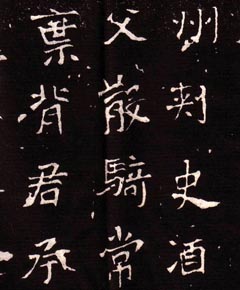 州刺史酒
父嚴騎常
棄背君承